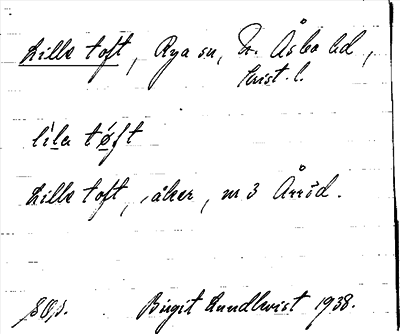 Lilla toft, Rya sn, N. Åsbo hd,
Krist. l.
lila tøft
Lilla toft, åker, nr 3 Årröd.
Birgit Lundkvist 1938.